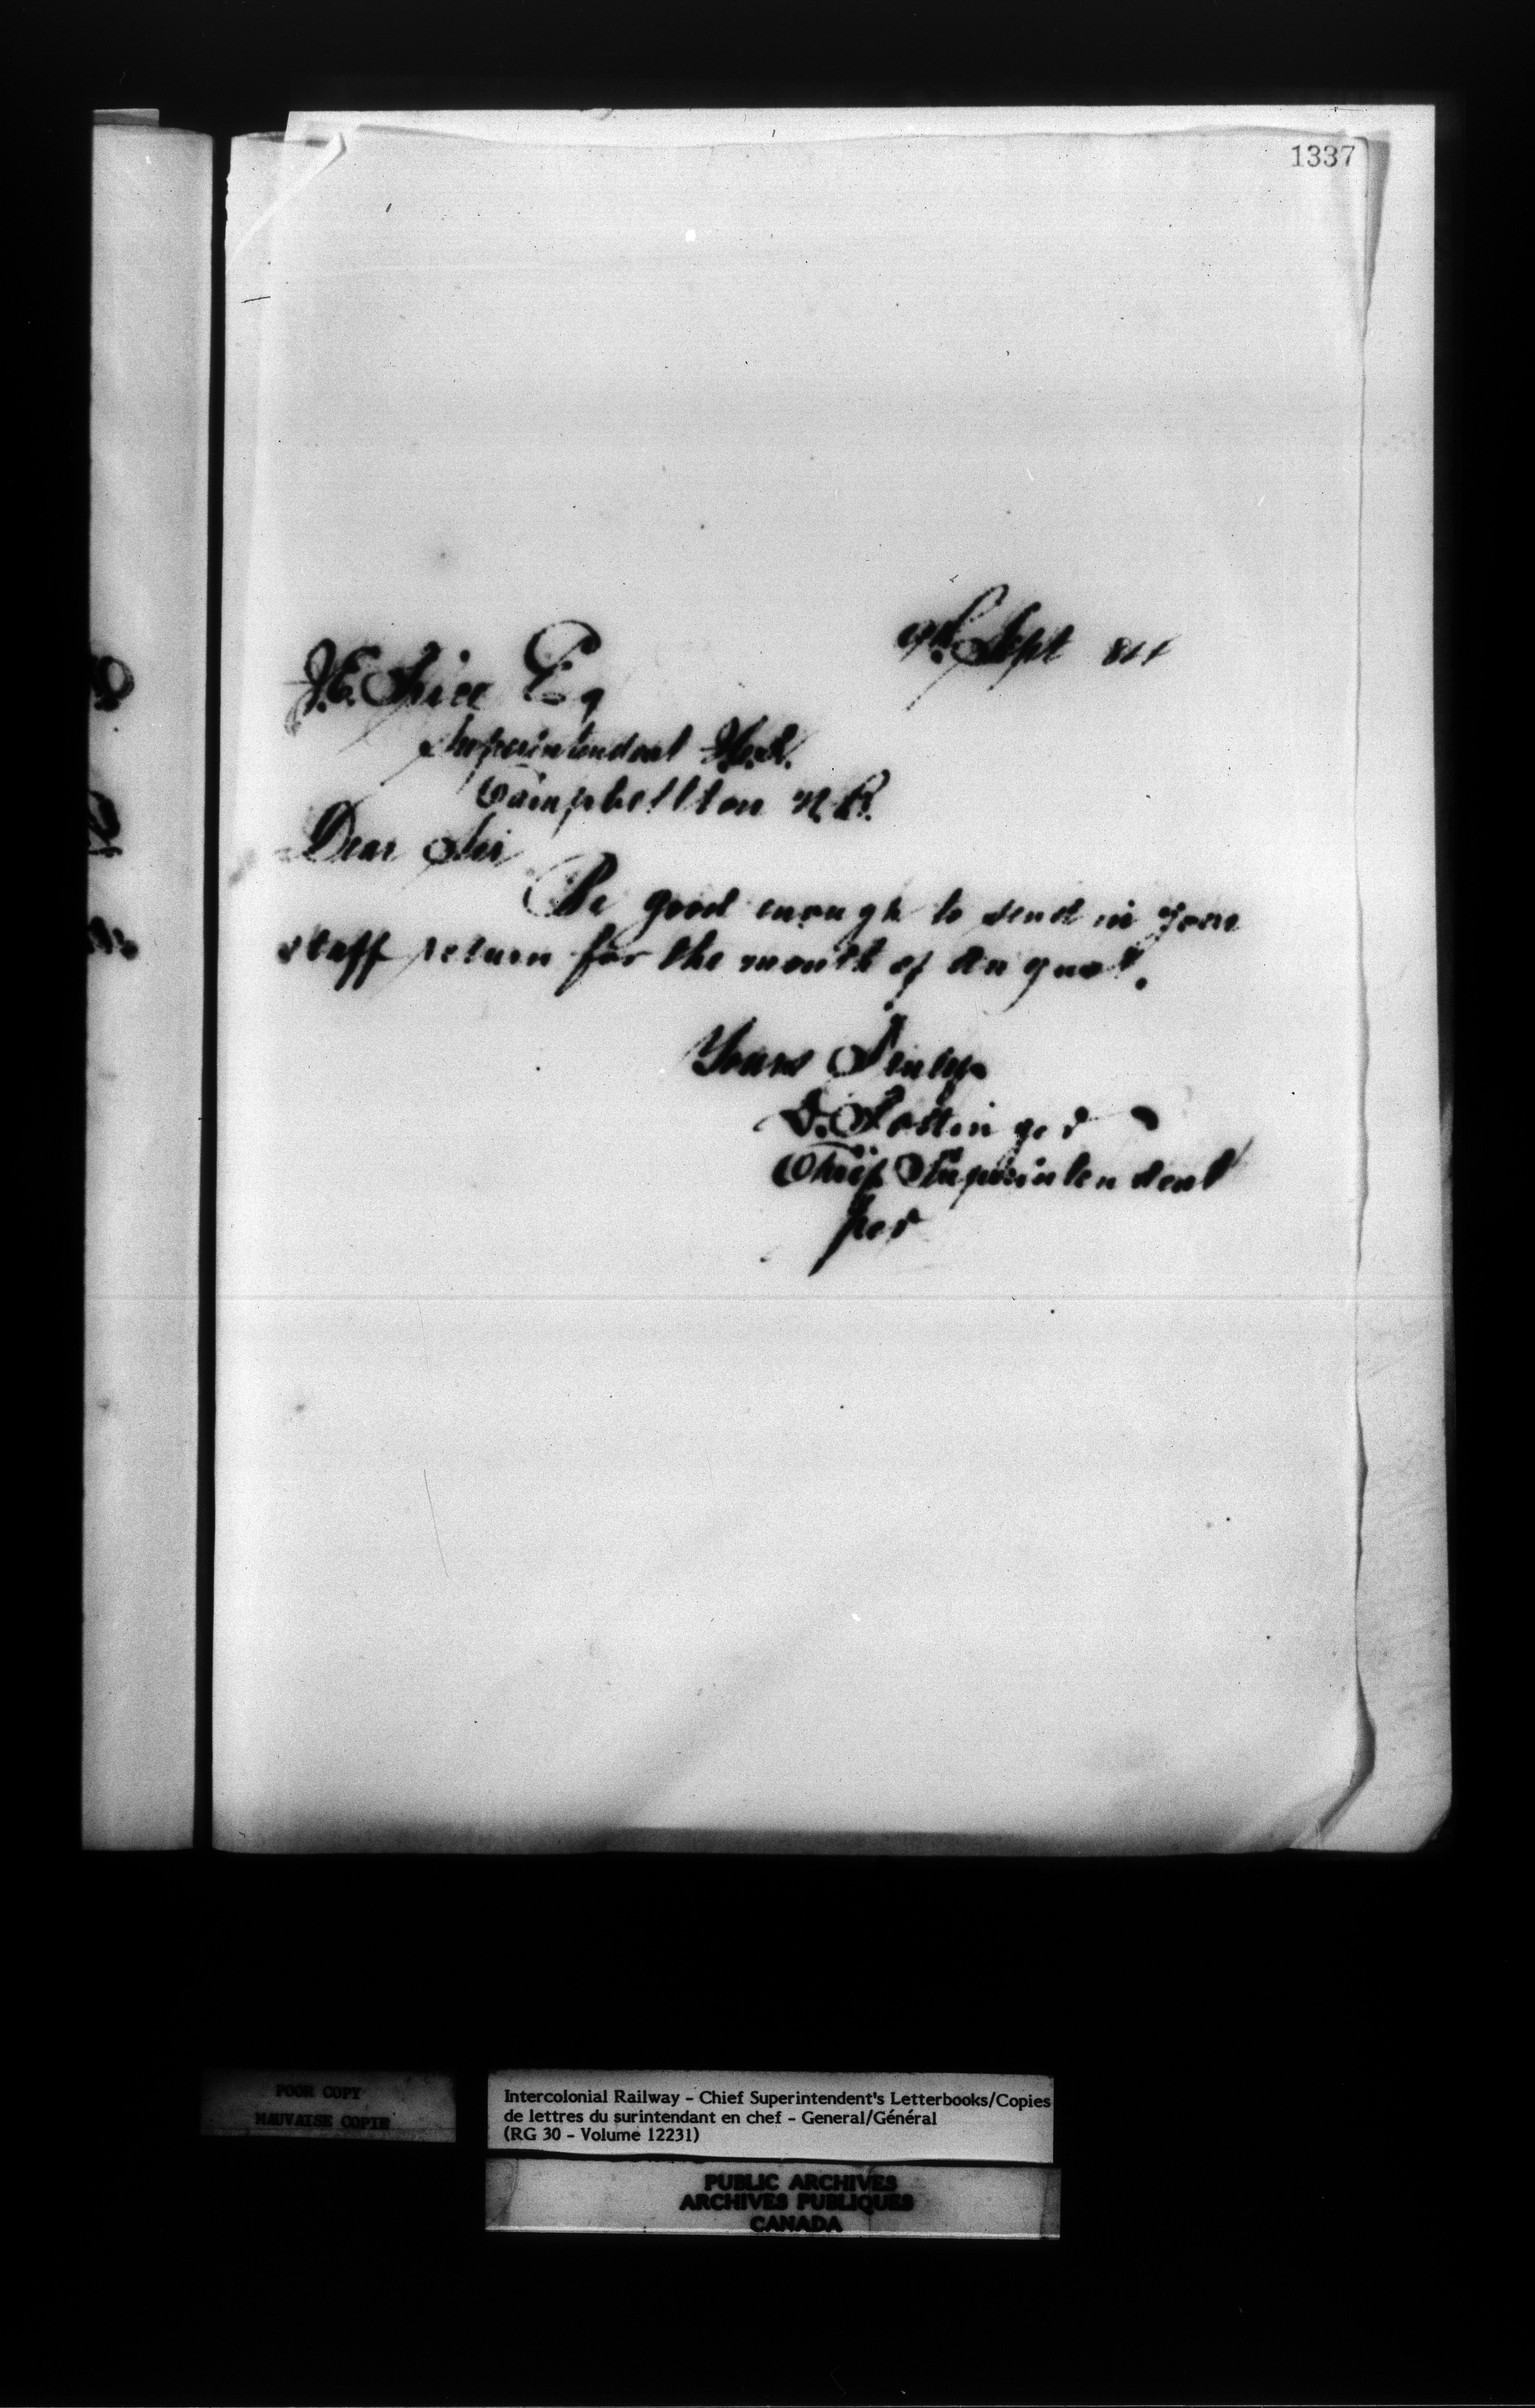 1337
9th. Sept 84
J.E. Price Esq
Superintendent
Campbellton N.B.
Dear Sir
Be good enough to send in your
staff return for the month of August.
Yours Truly
D. Pottinger
Chief Superintendent
per
POOR COPY
MAUVAISE COPIE
Intercolonial Railway - Chief Superintendent's Letterbooks/Copies
de lettres du surintendant en chef - General/Général
(RG 30 - Volume 12231)
PUBLIC ARCHIVES
ARCHIVES PUBLIQUES
CANADA